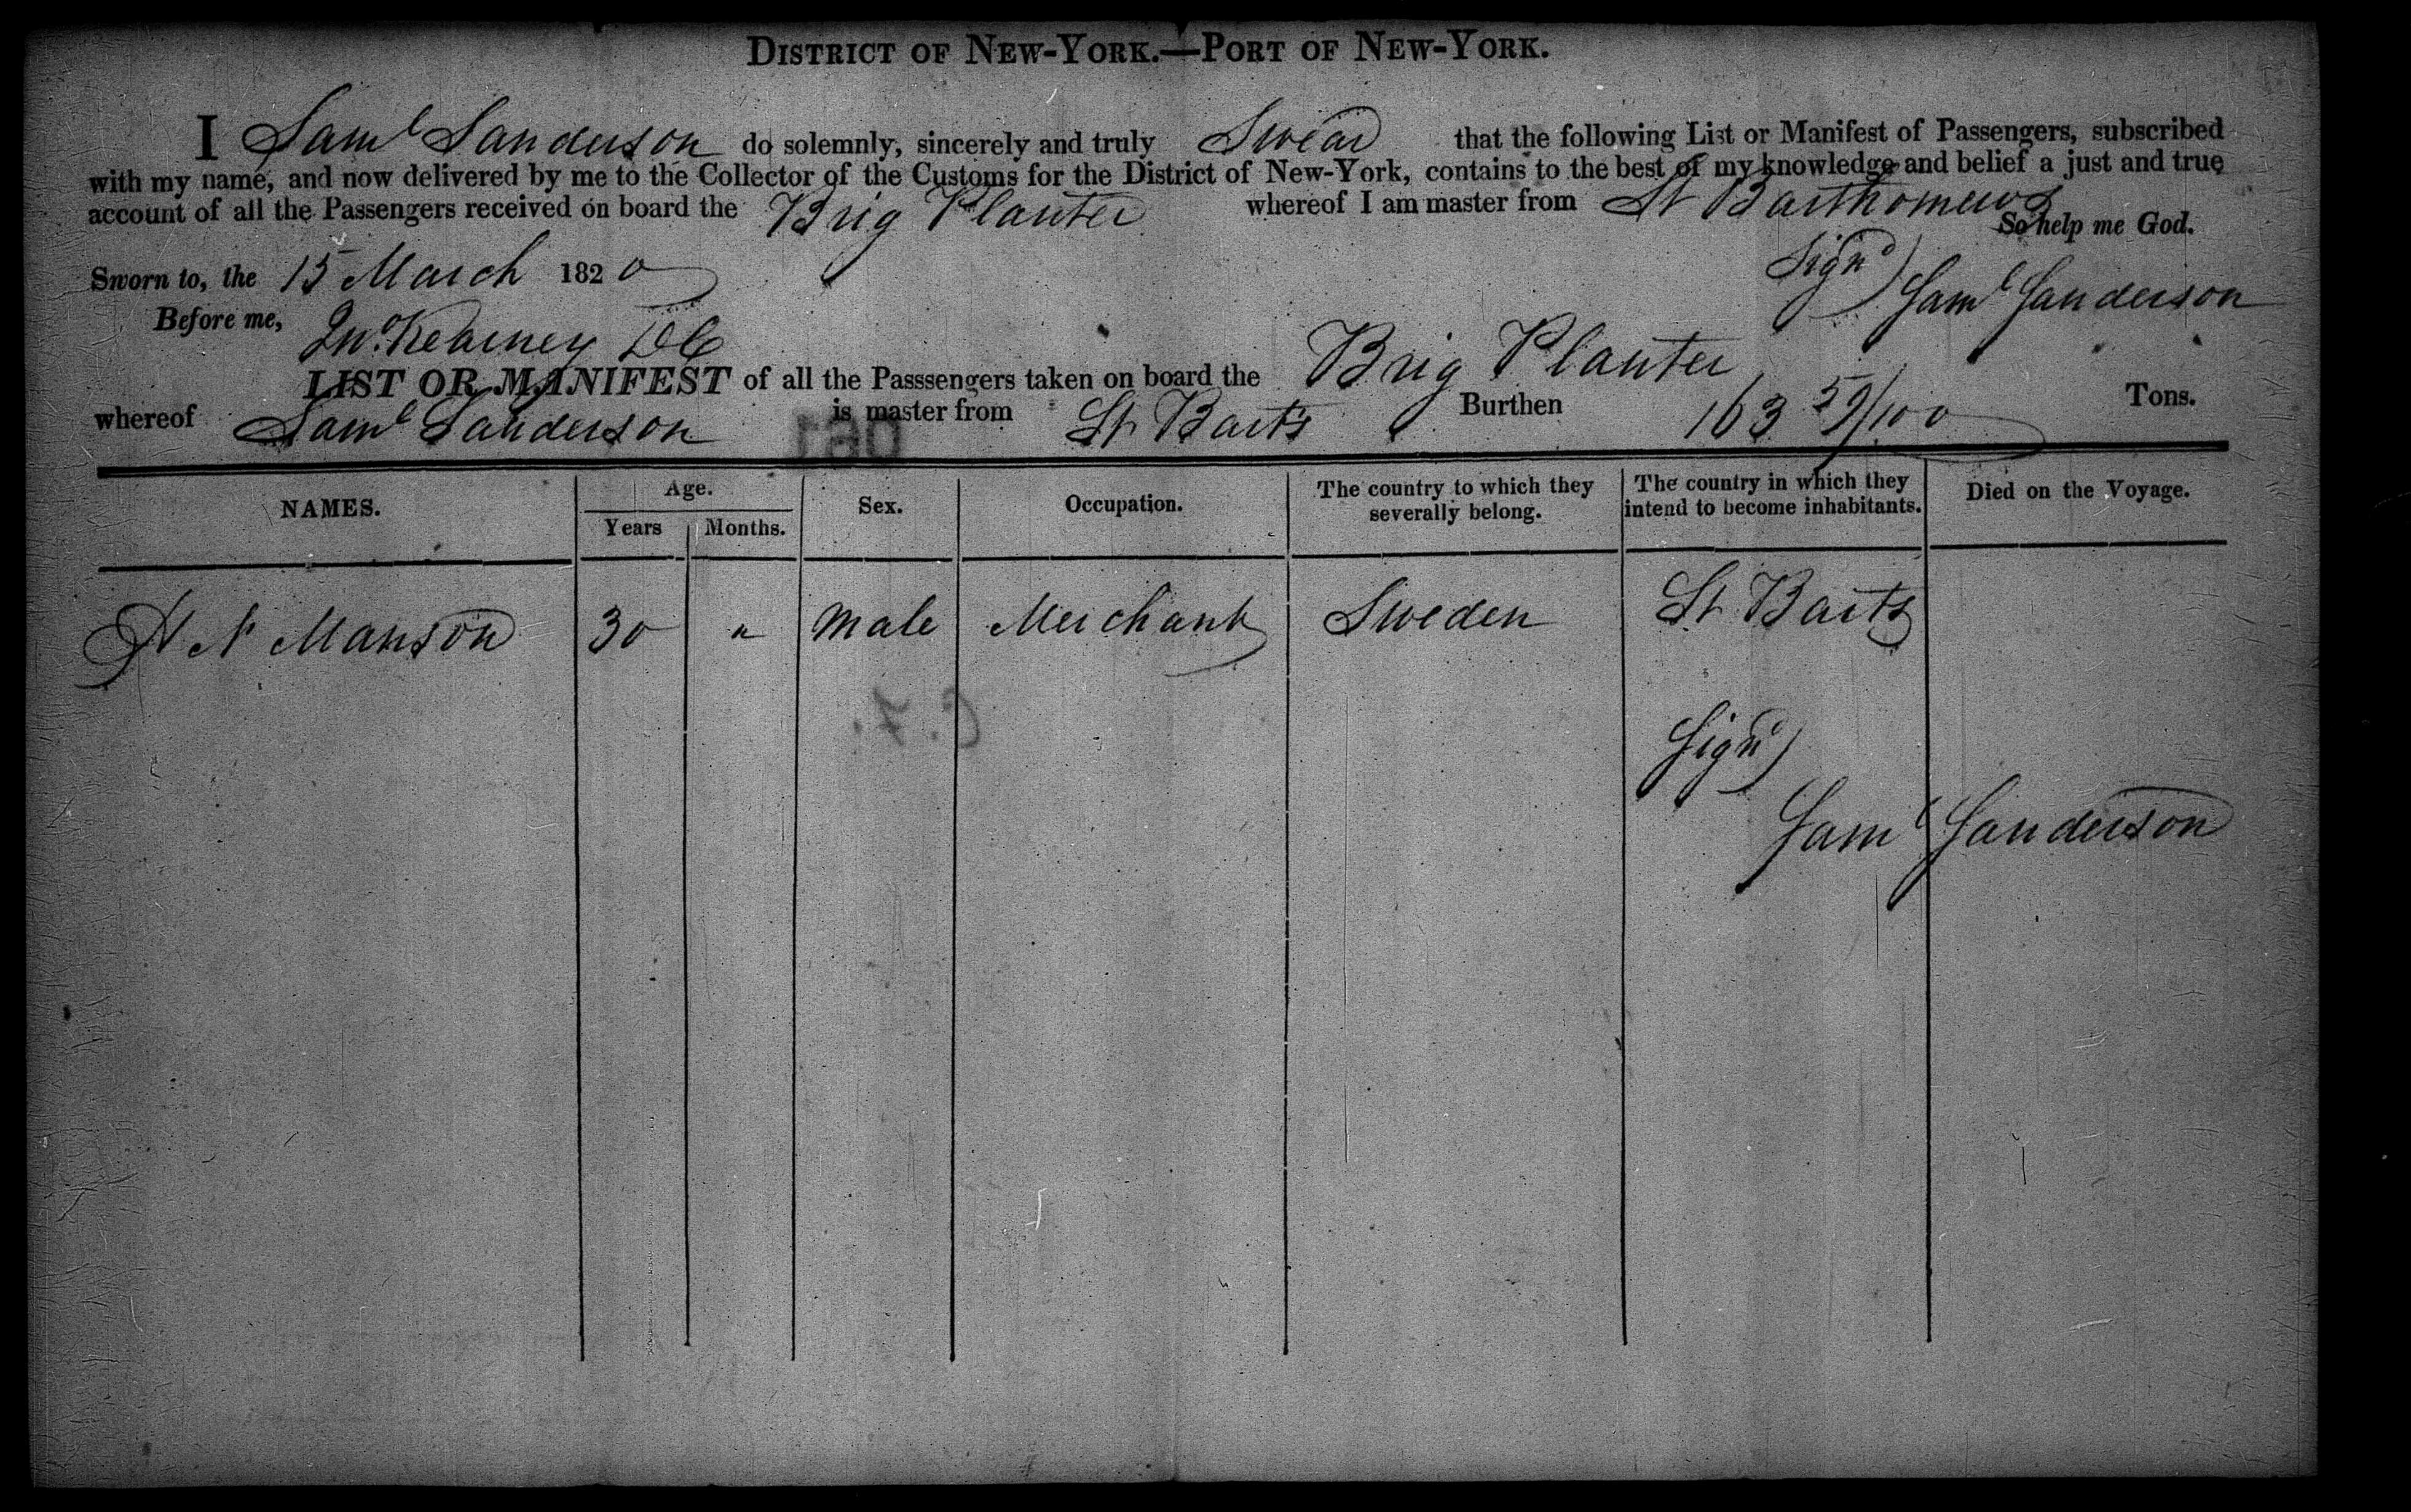 DISTRICT OF NEW-YORK.—PORT OF NEW-YORK.
I Saml Sanderson do solemnly, sincerely and truly Swear that the following List or Manifest of Passengers, subscribed
with my name, and now delivered by me to the Collector of the Customs for the District of New-York, contains to the best of my knowledge and belief a just and true
account of all the Passengers received on board the Brig Planter whereof I am master from St Barthomews
So help me God.
Sworn to, the 15 March 1820
Signd) Saml Sanderson
Before me, Jno. Kearney DC
LIST OR MANIFEST of all the Passsengers taken on board the Brig Planter
whereof Saml Sanderson is master from St Barts Burthen 163 59/100 Tons.
NAMES. Age. Sex. Occupation. The country to which they severally belong. The country in which they intend to become inhabitants. Died on the Voyage.
Years Months.
N Manson 30 " Male Merchant Sweden St Barts
Signd)
Saml Sanderson